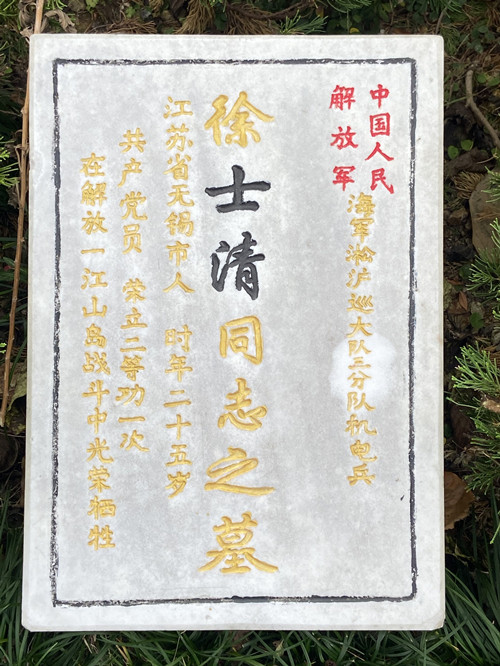 中国人民
解放军
海军淞沪巡大队三分队机电兵
徐士清同志之墓
江苏省无锡市人 时年二十五岁
共产党员 荣立二等功一次
在解放一江山岛战斗中光荣牺牲